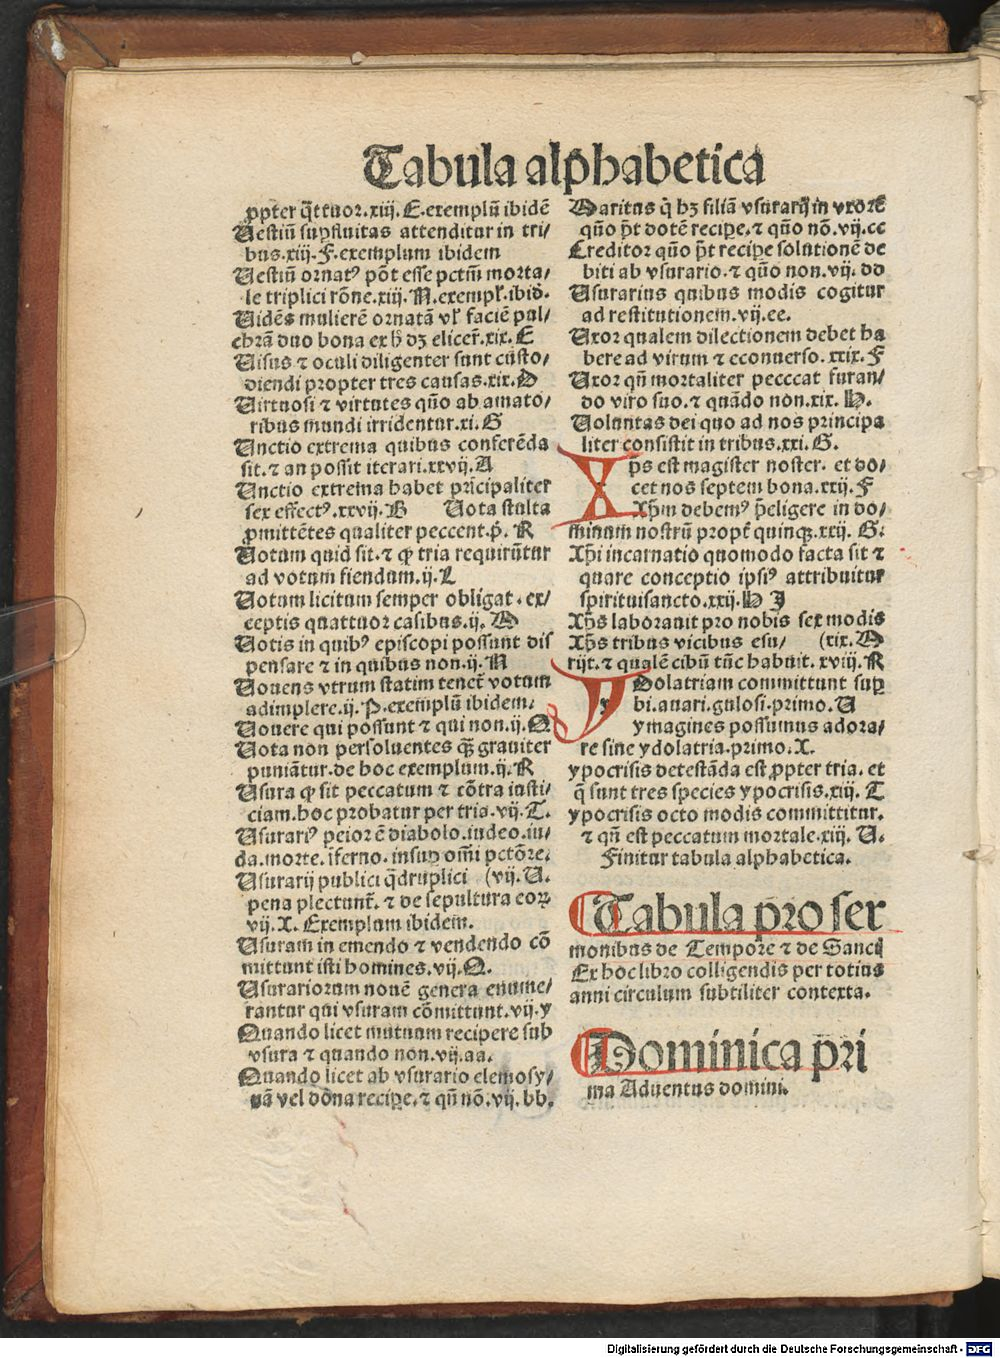 Tabula alphabetica
ꝓpter q̃ttuor.xiij. E.exemplũ ibidẽ
Uestiũ suꝑfluitas attenditur in tri⸗
bus.xiij. F.exemplum ibidem
Uestiũ ornatꝰ põt esse pctm̃ morta⸗
le triplici rõne.xiij. N.exempl'.ibid'.
Uidẽs mulierẽ ornatã vl' faciẽ pul⸗
chrã duo bona ex hˀ dꝫ elicer̃.xix. E
Uisus ⁊ oculi diligenter sunt custo⸗
diendi propter tres causas.xix. D
Uirtuosi ⁊ virtutes qũo ab amato⸗
ribus mundi irridentur.xi. G
Unctio extrema quibus conferẽda
sit.⁊ an possit iterari.xxvij. A
Unctio extrema habet prĩcipaliter
sex effectꝰ.xxvij. B Uota stulta
ꝓmittẽtes qualiter peccent.p̃. R
Uotum quid sit.⁊ ꝙ tria requirũtur
ad votum fiendum.ij. L
Uotum licitum semper obligat.ex⸗
ceptis quattuor casibus.ij. M
Uotis in quibꝰ episcopi possunt dis
pensare ⁊ in quibus non.ij. N
Uouens vtrum statim tenet̃ votum
adimplere.ij. P.exemplũ ibidem.
Uouere qui possunt ⁊ qui non.ij. Q
Uota non persoluentes qꝫ̃ grauiter
puniãtur.de hoc exemplum.ij. R
Usura ꝙ sit peccatum ⁊ cõtra iusti⸗
ciam.hoc probatur per tria.vij. T.
Usurariꝰ peior ẽ diabolo.iudeo.iu⸗
da.morte.ĩferno.insuꝑ om̃i pctõre.
Usurarij publici q̃druplici (vij. U.
pena plectunt̃.⁊ de sepultura eoꝝ
vij. X. Exemplum ibidem.
Usuram in emendo ⁊ vendendo cõ
mittunt isti homines.vij. Q.
Usurariorum nouẽ genera enume⸗
rantur qui vsuram cõmittunt.vij. y
Quando licet mutuum recipere sub
vsura ⁊ quando non.vij. aa.
Quando licet ab vsurario elemosy⸗
nã vel dõna recipe̱.⁊ qñ nõ.vij. bb.
Maritus q̃ hꝫ filiã vsurarij in vxorẽ
qũo p̃t dotẽ recipe̱.⁊ qũo nõ.vij. cc
Creditor qũo p̃t recipe̱ solutionẽ de
biti ab vsurario.⁊ qũo non.vij. dd
Usurarius quibus modis cogitur
ad restitutionem.vij. ee.
Uxor qualem dilectionem debet ha
bere ad virum ⁊ econuerso.xxix. F
Uxor qñ mortaliter pecccat furan⸗
do viro suo.⁊ quãdo non.xix. H.
Uoluntas dei quo ad nos principa
liter consistit in tribus.xxi. G.
Xp̃s est magister noster. et do⸗
cet nos septem bona.xxij. F
Xp̃m debemꝰ p̃eligere in do⸗
minum nostrũ propt̃ quinqꝫ.xxij. G.
Xp̃i incarnatio quomodo facta sit ⁊
quare conceptio ipsiꝰ attribuitur
spirituisancto.xxij. H I
Xp̃s laborauit pro nobis sex modis
Xp̃s tribus vicibus esu⸗ (xix. M
rijt.⁊ qualẽ cibũ tũc habuit.xviij. R
Ydolatriam committunt suꝑ
bi.auari.gulosi.primo. U
ymagines possumus adora⸗
re sine ydolatria.primo. X.
ypocrisis detestãda est ꝓpter tria. et
q̃ sunt tres species ypocrisis.xiij. T
ypocrisis octo modis committitur.
⁊ qñ est peccatum mortale.xiij. U.
Finitur tabula alphabetica.
Tabula pro ser
monibus de Tempore ⁊ de Sancti
Ex hoc libro colligendis per totius
anni circulum subtiliter contexta.
Dominica pri
ma Aduentus domini.
Digitalisierung gefördert durch die Deutsche Forschungsgemeinschaft - DFG